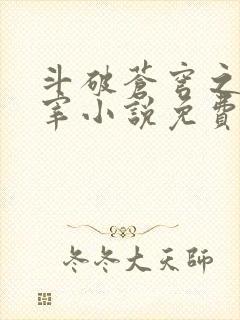 斗破蒼穹之
宰小說免費
冬冬大天師